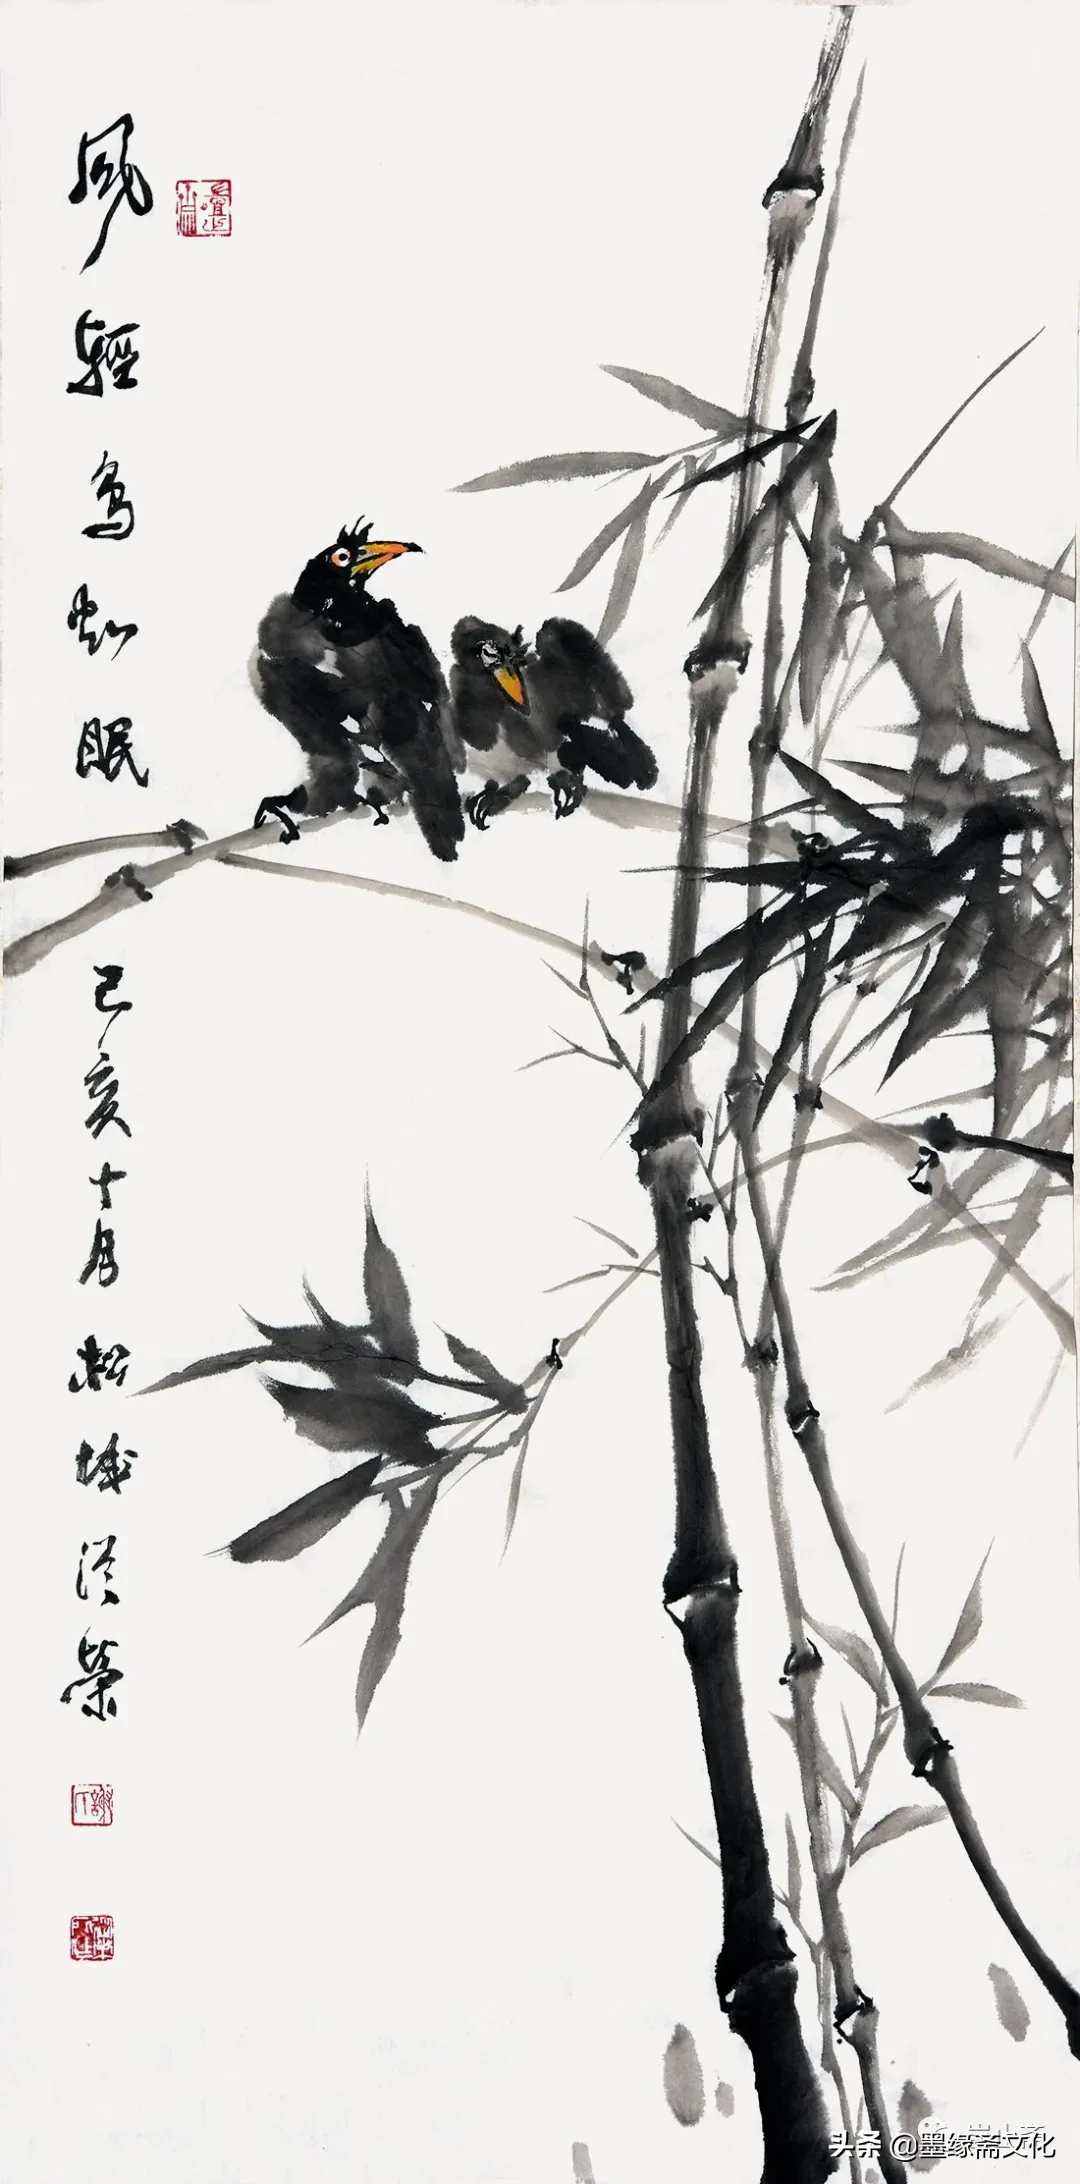 风輕鸟眠
己亥十月松城榮
头条 @墨缘斋文化